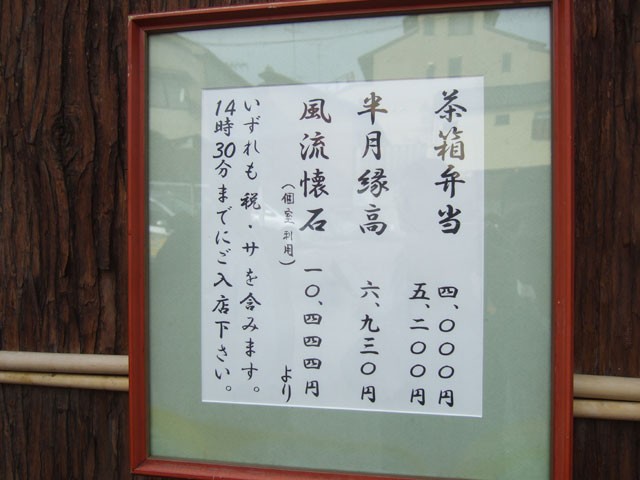 茶箱弁当
四、〇〇〇円
五、二〇〇円
半月縁高
六、九三〇円
風流懐石
一〇、四四四円
(個室利用)
より
いずれも税・サを含みます。
14時30分までにご入店下さい。